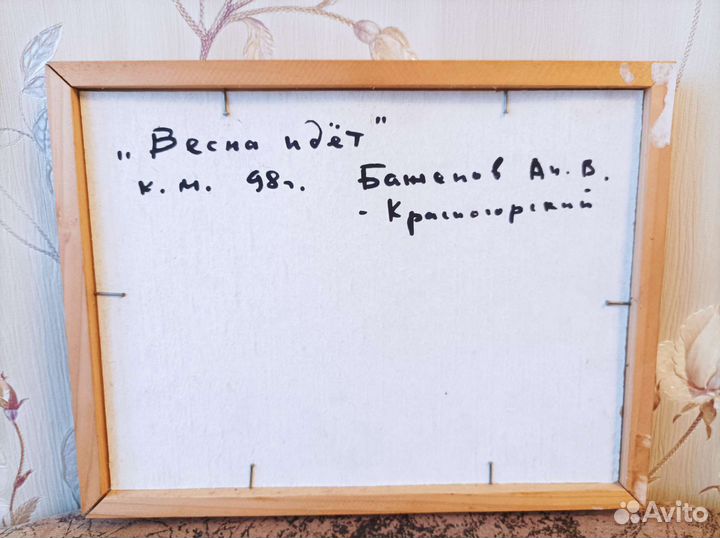 „Весна идёт"
к. м. 98г. Баженов Ан. В.
- Красногорский
Avito